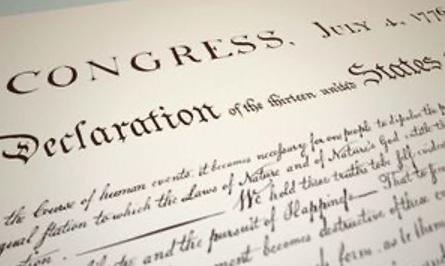 CONGRESS. JULY 4, 1776
Declaration of the thirteen united States
the Course of human events, it becomes necessary for one people to dissolve the
equal station to which the Laws of Nature and of Nature's God entitle
We hold these truths to be self evident
and the pursuit of Happiness That to
becomes destructive of these
form, as to them